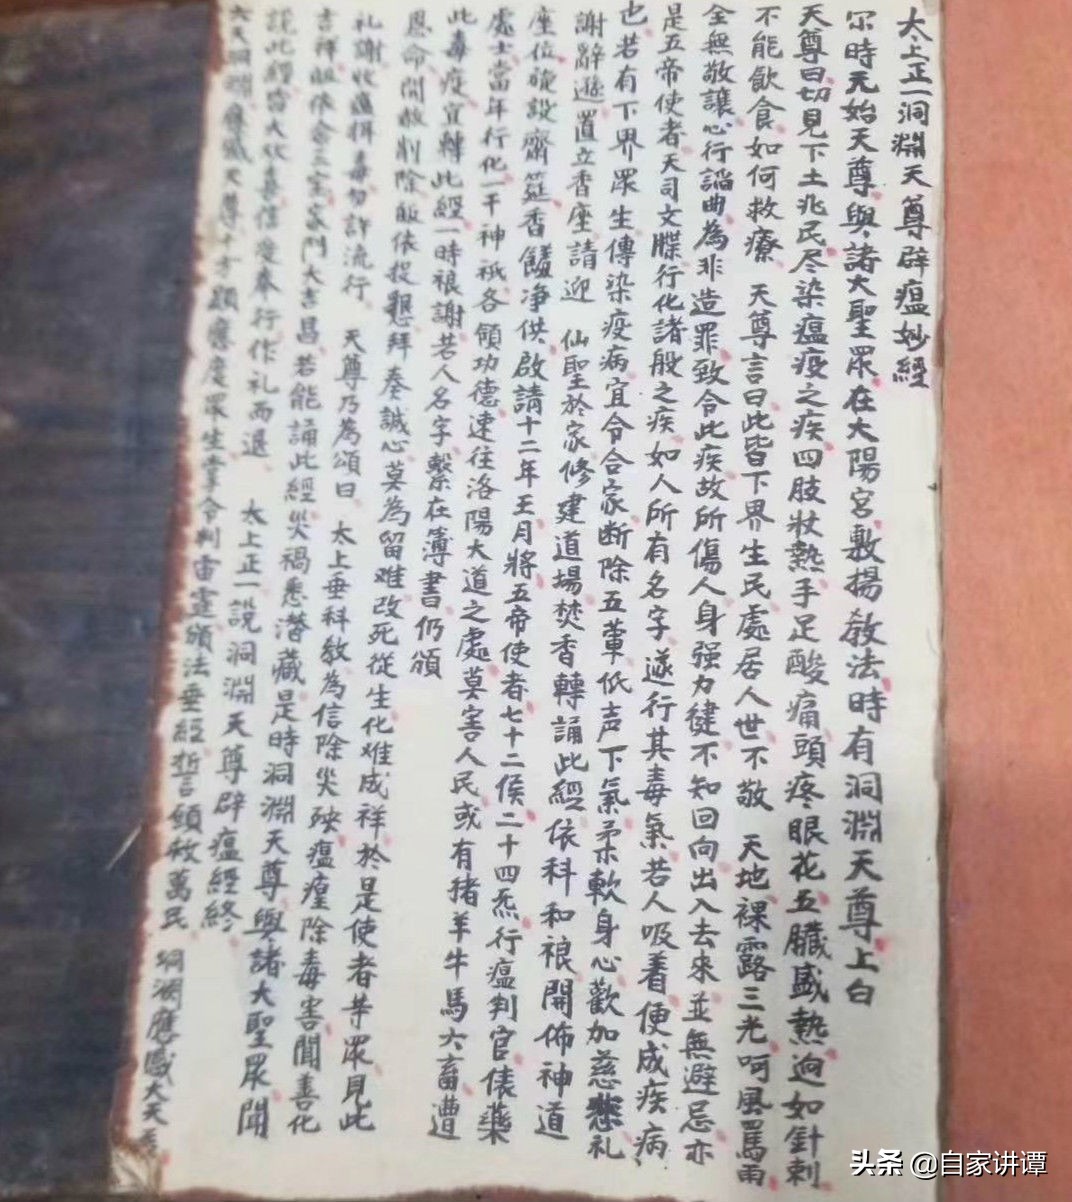 太上正一洞淵天尊辟瘟妙經
尔時元始天尊與諸大聖眾在大陽宮敷揚教法時有洞淵天尊上白
天尊曰切見下土兆民尽染瘟疫之疾四肢壮熱手足酸痛頭疼眼花五臟盛熱迥如針刺
不能飲食如何救療 天尊言曰此皆下界生民處居人世不敬 天地裸露三光呵風罵雨
全無敬讓心行謟曲為非造罪致合此疾故所傷人身强力徤不知回向出入去来並無避忌亦
是五帝使者天司文牒行化諸般之疾如人所有名字遂行其毒氣若人吸着便成疾病
也若有下界眾生傳染疫病宜令合家断除五葷低声下氣柔軟身心歡加慈悲礼
謝辭遜置立香座請迎 仙聖於家修建道場焚香轉誦此經依科和禳開佈神道
座位旋設齋筵香饈净供啟請十二年王月將五帝使者七十二侯二十四炁行瘟判官俵藥
處士當年行化一干神祇各領功德速往洛陽大道之處莫害人民或有猪羊牛馬六畜遭
此毒疫宜轉此經一時禳謝若人名字繫在簿書仍頒
恩命開赦削除皈依投懇拜奏誠心莫為留难改死從生化难成祥於是使者等眾見此
礼謝收瘟摄毒勿許流行 天尊乃為頌曰 太上垂科教為信除災殃瘟㾮除毒害聞善化
吉祥皈依命三宝家門大吉昌若能誦此經災禍悉潛藏是時洞淵天尊與諸大聖眾聞
説此經皆大欢喜信受奉行作礼而退 太上正一説洞淵天尊辟瘟經終
六天洞淵 天尊十方 應度眾生掌令判雷霆 法垂經誓願救萬民 洞淵應感大天尊